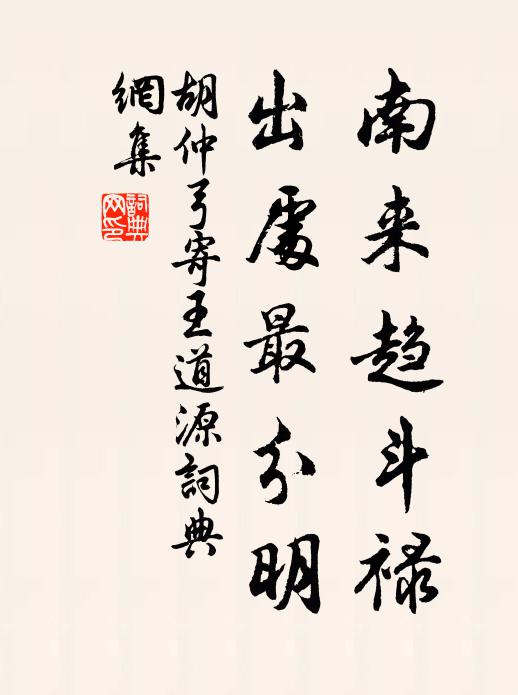 南来趋斗禄
出處最分明
胡仲弓寄王道源詞典
網集
詞典
网印